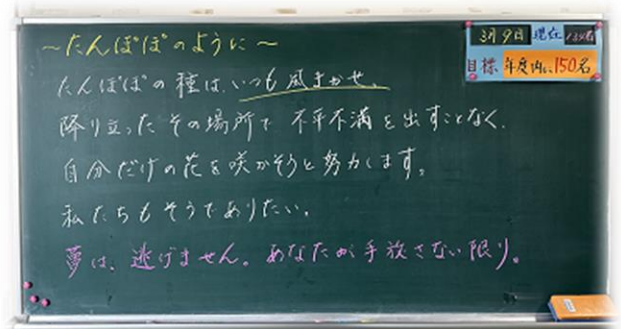 ～たんぽぽのように～
たんぽぽの種は、いつも風まかせ。
降り立ったその場所で 不平不満を出すことなく、
自分だけの花を咲かそうと努力します。
私たちもそうでありたい。
夢は、逃げません。あなたが手放さない限り。
3月9日 現在 134名
目標 年度内に150名